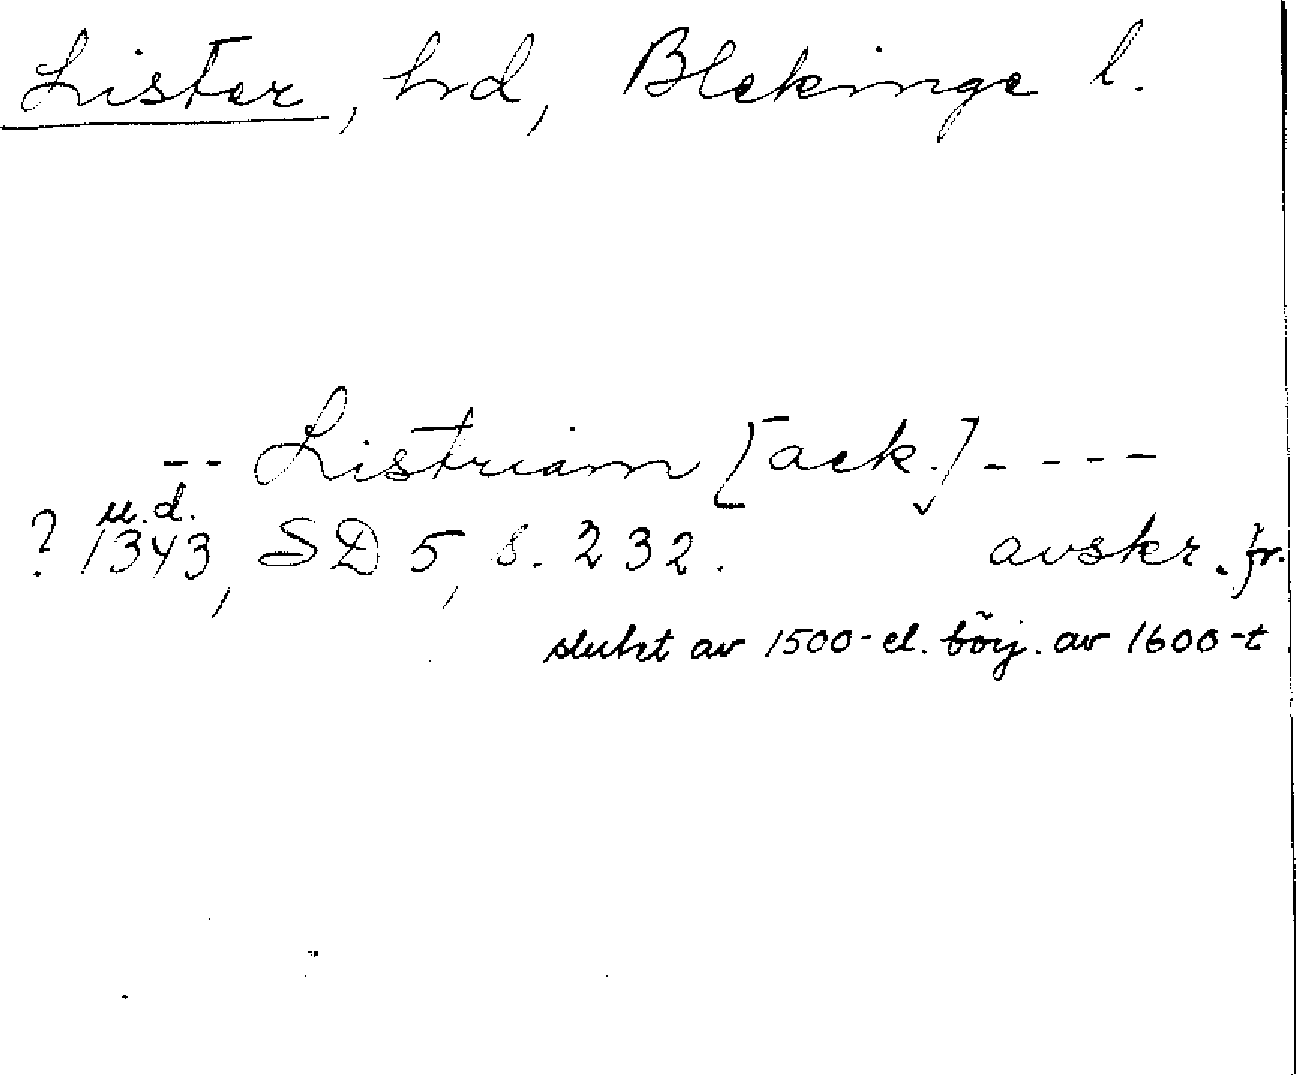 Lister, hd, Blekinge l.
-- Listriam [ack.] ----
u.d.
? 1343, SD 5, s. 232. avskr. fr.
slutet av 1500- el. börj. av 1600-t